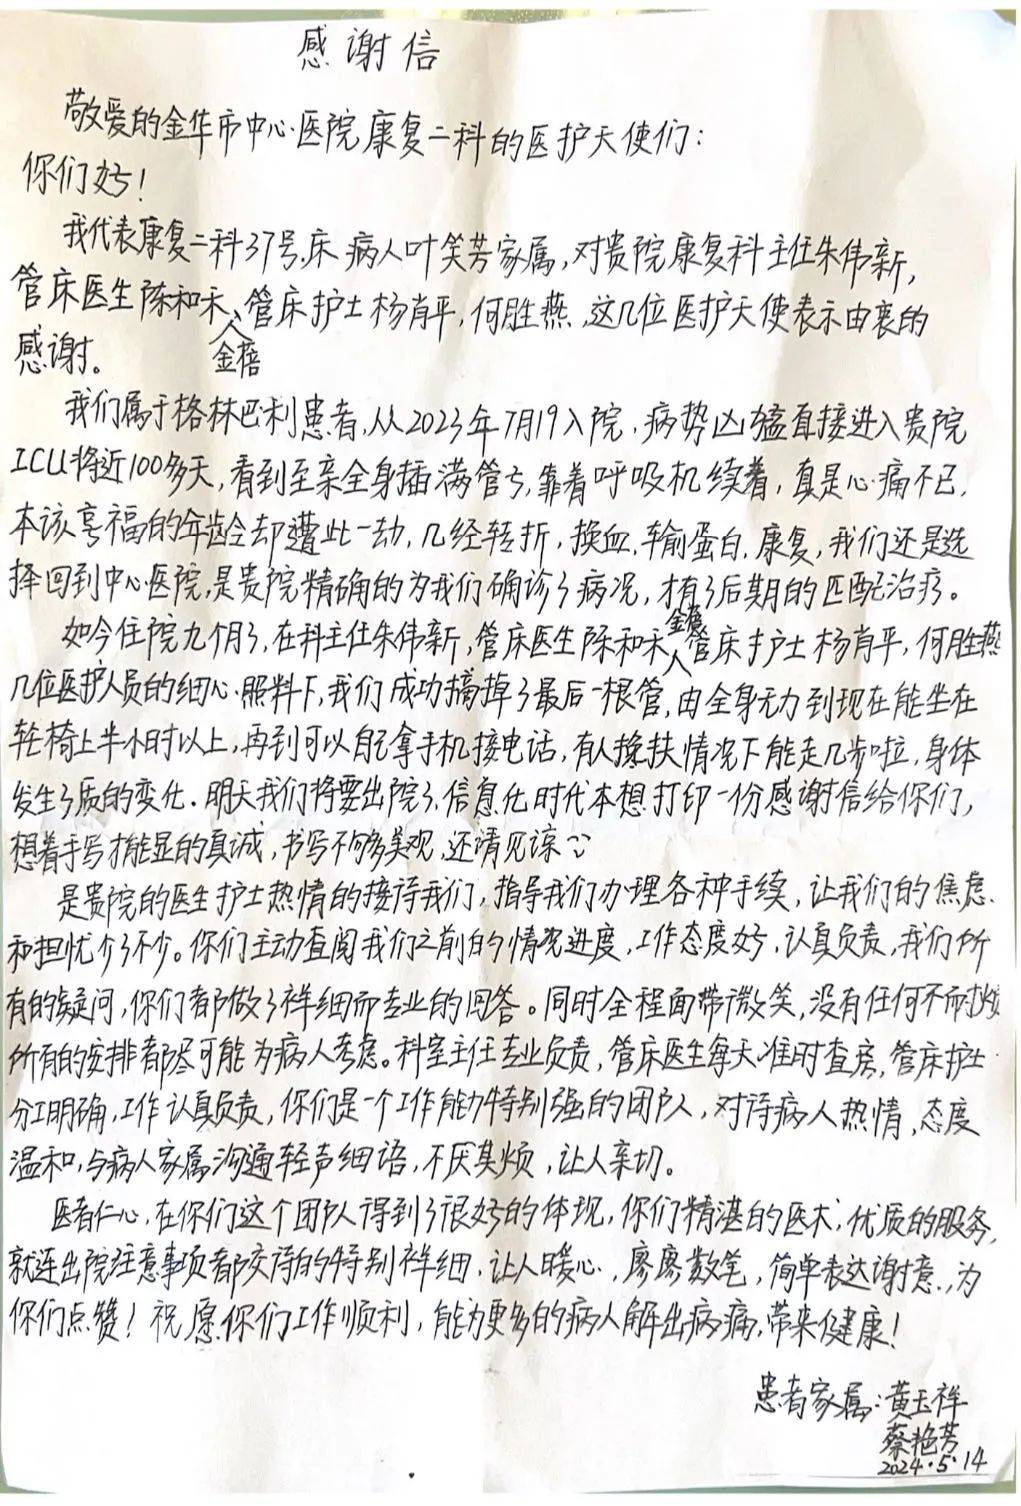 感谢信
敬爱的金华市中心医院康复二科的医护天使们：
你们好！
我代表康复二科37号床病人叶笑芳家属，对贵院康复科主任朱伟新，
管床医生陈和禾、金蓓管床护士杨肖平，何胜燕，这几位医护天使表示由衷的
感谢。
我们属于格林巴利患者，从2023年7月19入院，病势凶猛直接进入贵院
ICU将近100多天，看到至亲全身插满管子，靠着呼吸机续着，真是心痛不已，
本该享福的年龄却遭此一劫，几经转折，换血，输蛋白，康复，我们还是选
择回到中心医院，是贵院精确的为我们确诊了病况，才有了后期的匹配治疗。
如今住院九个月了，在科主任朱伟新，管床医生陈和禾金蓓管床护士杨肖平，何胜燕
几位医护人员的细心照料下，我们成功摘掉了最后一根管，由全身无力到现在能坐在
轮椅上半小时以上，再到可以自己拿手机接电话，有人搀扶情况下能走几步啦，身体
发生了质的变化．明天我们将要出院了，信息化时代本想打印一份感谢信给你们，
想着手写才能显的真诚，书写不够美观，还请见谅
是贵院的医生护士热情的接待我们，指导我们办理各种手续，让我们的焦虑
和担忧少了不少。你们主动查阅我们之前的情况进度，工作态度好，认真负责，我们所
有的疑问，你们都做了详细而专业的回答。同时全程面带微笑，没有任何不耐烦
所有的安排都尽可能为病人考虑。科室主任专业负责，管床医生每天准时查房，管床护士
分工明确，工作认真负责，你们是一个工作能力特别强的团队，对待病人热情，态度
温和，与病人家属沟通轻声细语，不厌其烦，让人亲切。
医者仁心，在你们这个团队得到了很好的体现，你们精湛的医术，优质的服务，
就连出院注意事项都交待的特别详细，让人暖心，廖廖数笔，简单表达谢意，为
你们点赞！祝愿你们工作顺利，能为更多的病人解出病痛，带来健康！
患者家属：黄玉祥
蔡艳芳
2024.5.14